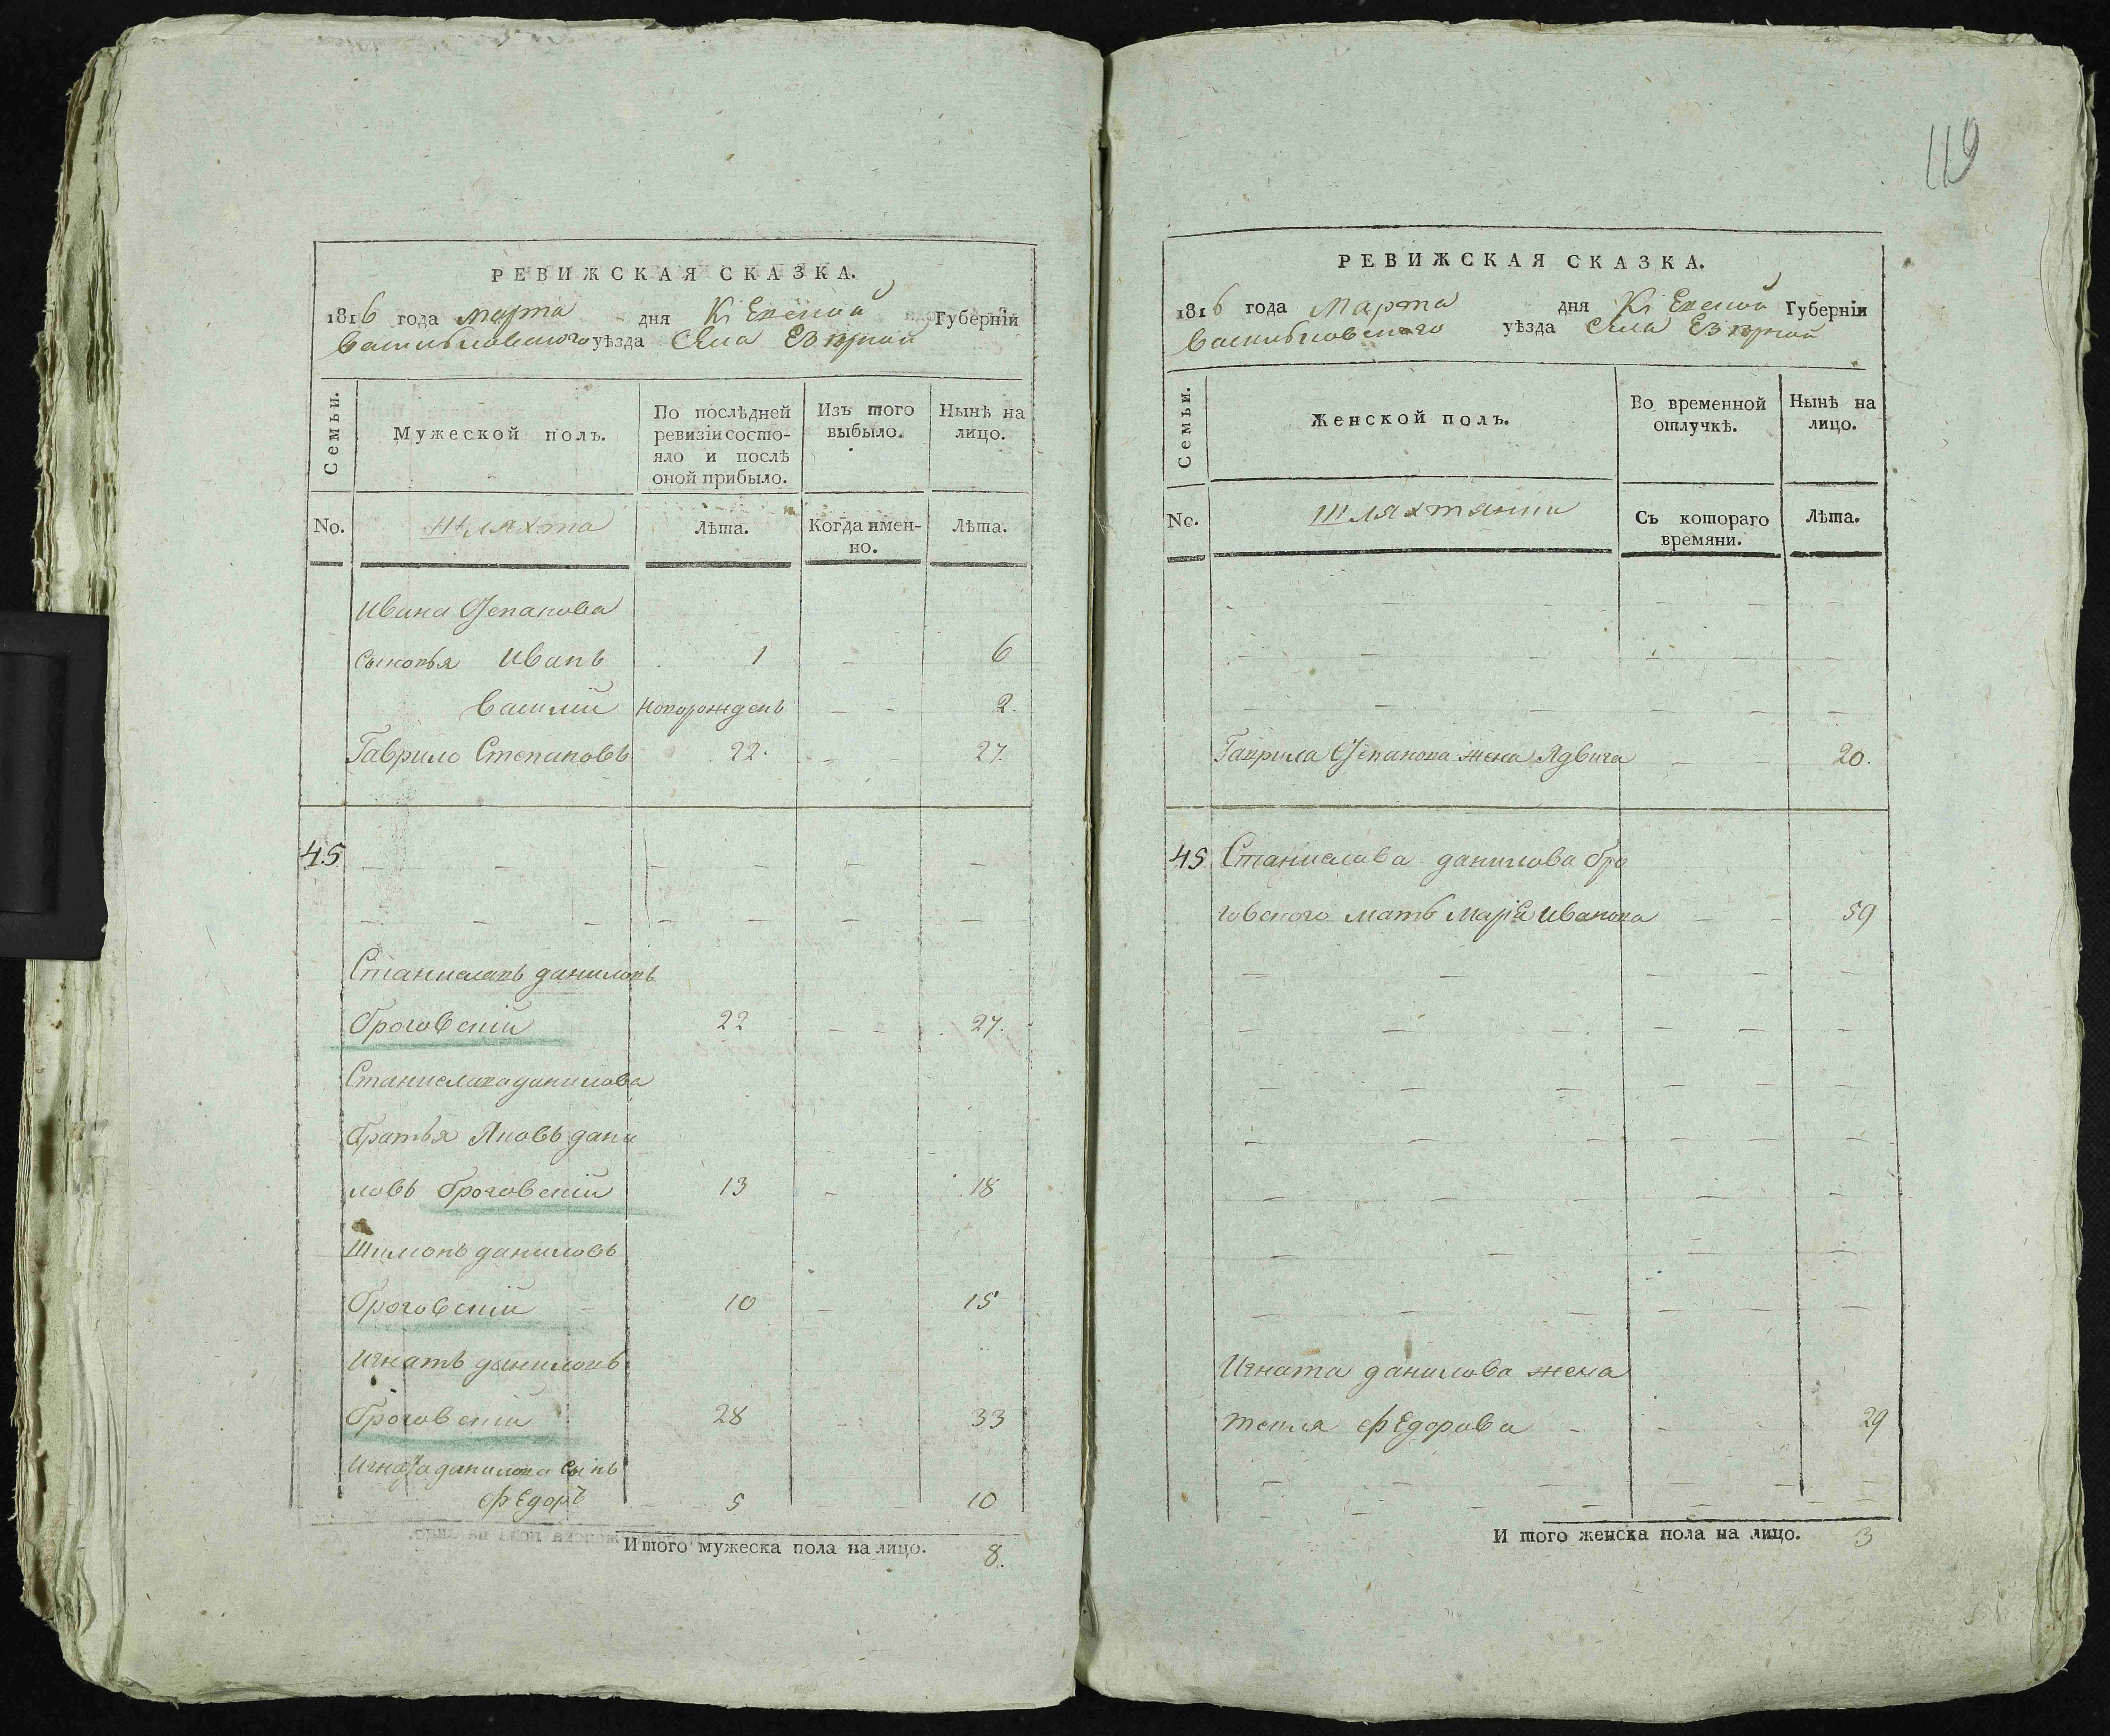 119
РЕВИЖСКАЯ СКАЗКА.
1816 года марта дня Кіевской Губерніи
Васильковского уѣзда Села
Семьи.
Мужеской полъ.
По послѣдней ревизіи состо-
яло и послѣ
оной прибыло.
Изъ того выбыло.
Нынѣ на лицо.
No.
Шляхта
Лѣта.
Когда имен-
но.
Лѣта.
Ивана Степанова
сыновья Иванъ 1 — 6
Василій новорожденъ — — 2.
Гаврило Степановъ 22. — — 27.
45
Станиславъ даниловъ
броговскій 22 — — 27.
Станислава данилова
братья Яковъ дани
ловъ броговскій 13 — 18
Шимонъ даниловъ
броговскій — 10 — 15
Игнатъ даниловъ
броговскій 28 — 33
Игната данилова сынъ
Федоръ 5 — — 10
Итого мужеска пола на лицо. 8.
РЕВИЖСКАЯ СКАЗКА.
1816 года Марта дня Кіевской Губерніи
Васильковского уѣзда Села
Семьи.
Женской полъ.
Во временной
отлучкѣ.
Нынѣ на
лицо.
No.
Шляхтянки
Съ котораго
времяни.
Лѣта.
Гаврила Степанова жена Ядвига — — 20.
45 Станислава данилова бро
говского мать Марія Иванова — — 59
Игната данилова жена
текля Федорова — — 29
И того женска пола на лицо. 3